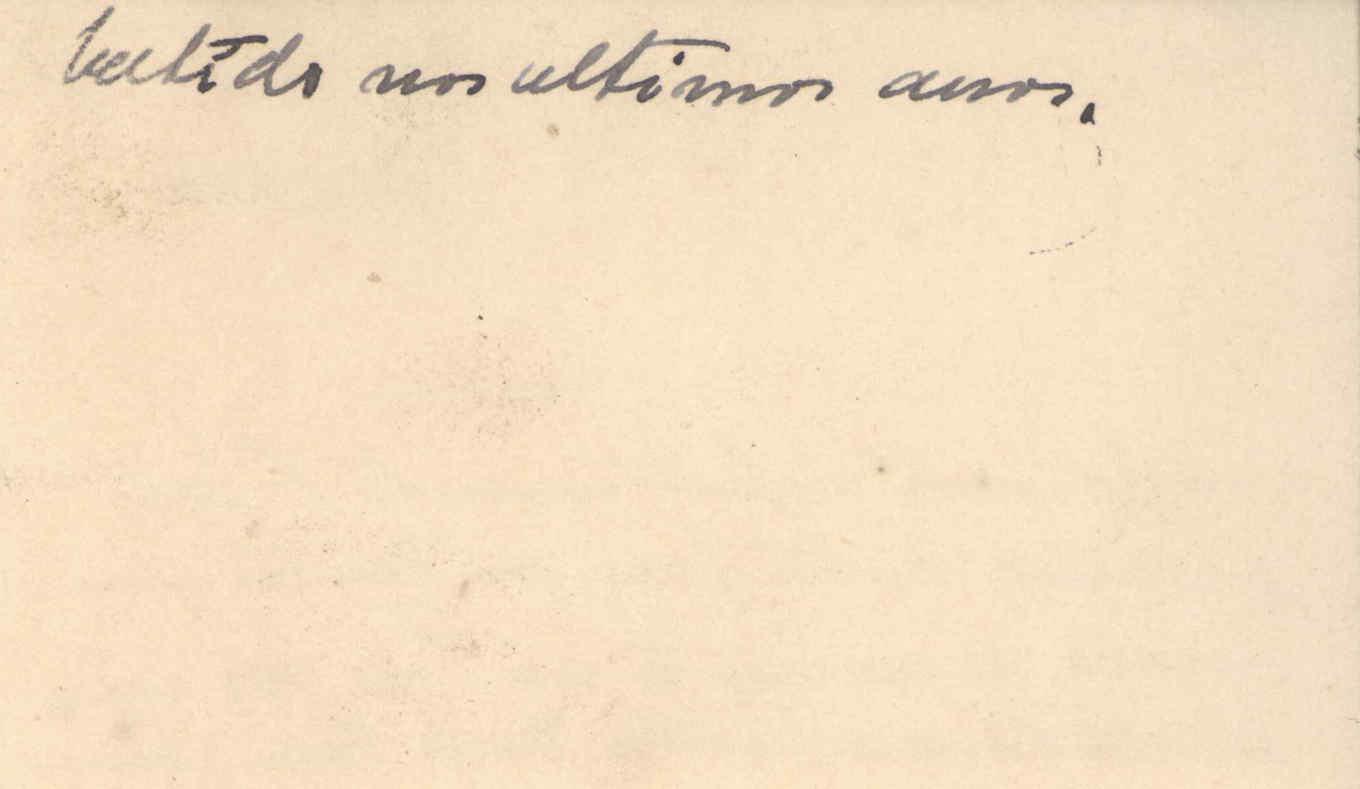 batido nos ultimos anos.